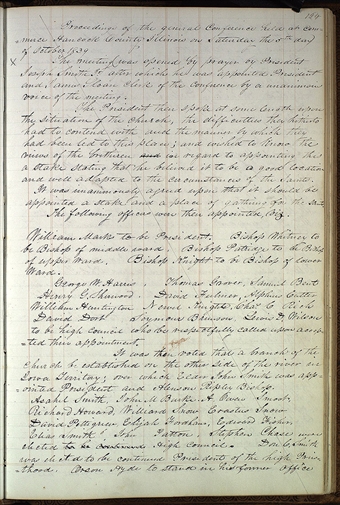 Proceedings of the general Conference held at Com-
merce Hancock County Illinois on Saturday the 5th day
of October 1839
The meeting was opened by prayer by President
Joseph Smith Jr after which he was appointed President
and James Sloan Clerk of the Conference by a unanimous
voice of the meeting.
The President then spoke at some length upon
the situation of the Church, the difficulties they
had to contend with and the manner by which they
had been led to this place; and wished to know the
views of the brethren in regard to appointing
a stake stating that he believed it to be a good location
and well adapted to the circumstances of the Saints.
It was unanimously agreed upon that it should be
appointed a stake and a place of gathering for the
The following officers were then appointed,
William Marks to be President. Bishop Whitney to
be Bishop of middle ward. Bishop Partridge to be
of upper Ward. Bishop Knight to be Bishop of lower
Ward.
George W. Harris, Thomas Grover, Samuel Bent
Henry G. Sherwood. David Fulmer, Alpheus Cutler
William Huntington Newel Knight, Chas C Rich
David Dort Seymour Brunson. Lewis D Wilson
to be high Council who be respectfully called upon
ted their appointment.
It was then voted that a branch of the
Church be established on the other side of the river in
Iowa Territory; over which Elder John Smith was app-
ointed President and Alanson Ripley Bishop.
Asahel Smith, John M. Burk A. Owen Smoot,
Richard Howard, Willard Snow Erastus Snow
David Pettegrew Elijah Fordham, Edward Fisher,
Elias Smith John Patton, Stephen Chase were
elected high Council. Don C. Smith
was elected to be continued President of the high Prie-
sthood. Orson Hyde to stand in his former office